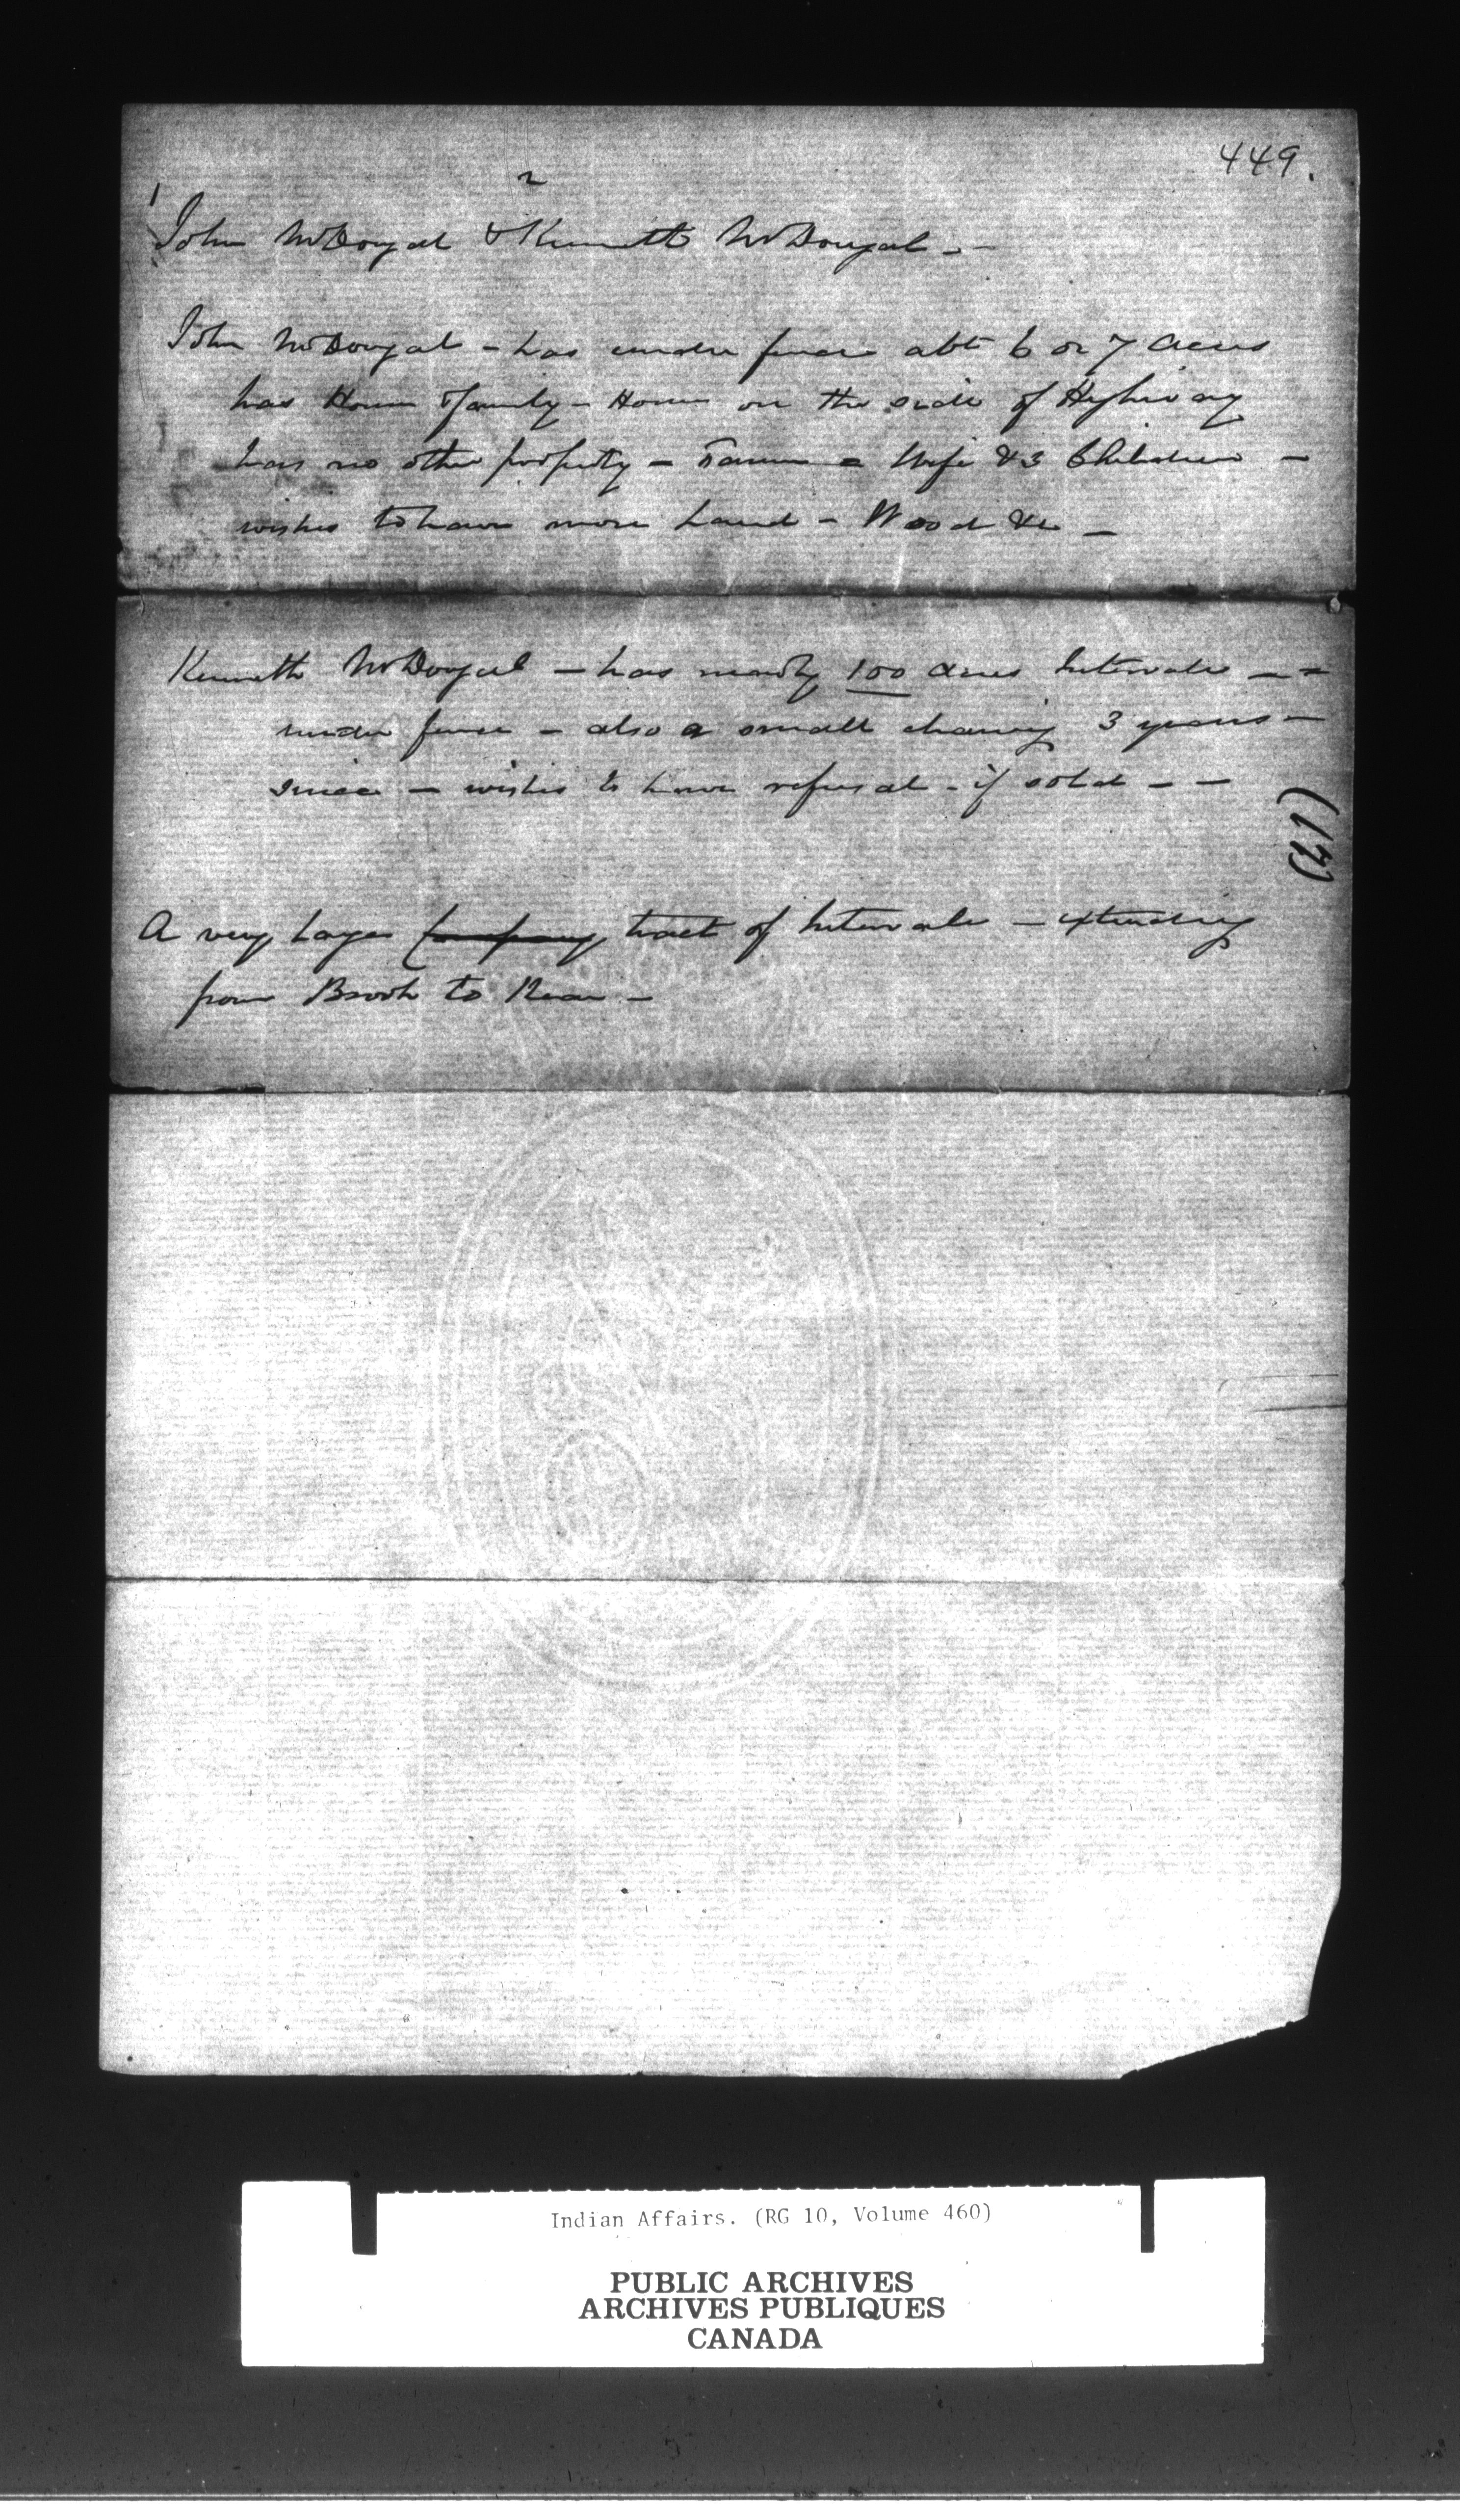 449.
1 2
John McDougal & Kenneth McDougal - -
John McDougal - has under fence abt 6 or 7 acres
has House & family - House on the side of Highway
has no other property - a Wife & 3 Children -
wishes to have more Land - Wood &c -
Kenneth McDougal - has nearly 100 acres Intervale - -
under fence - also a small clearing 3 years -
since - wishes to have refusal - if sold - -
(17)
A very large tract of Intervale - extending
from Brook to Rear -
Indian Affairs. (RG 10, Volume 460)
PUBLIC ARCHIVES
ARCHIVES PUBLIQUES
CANADA